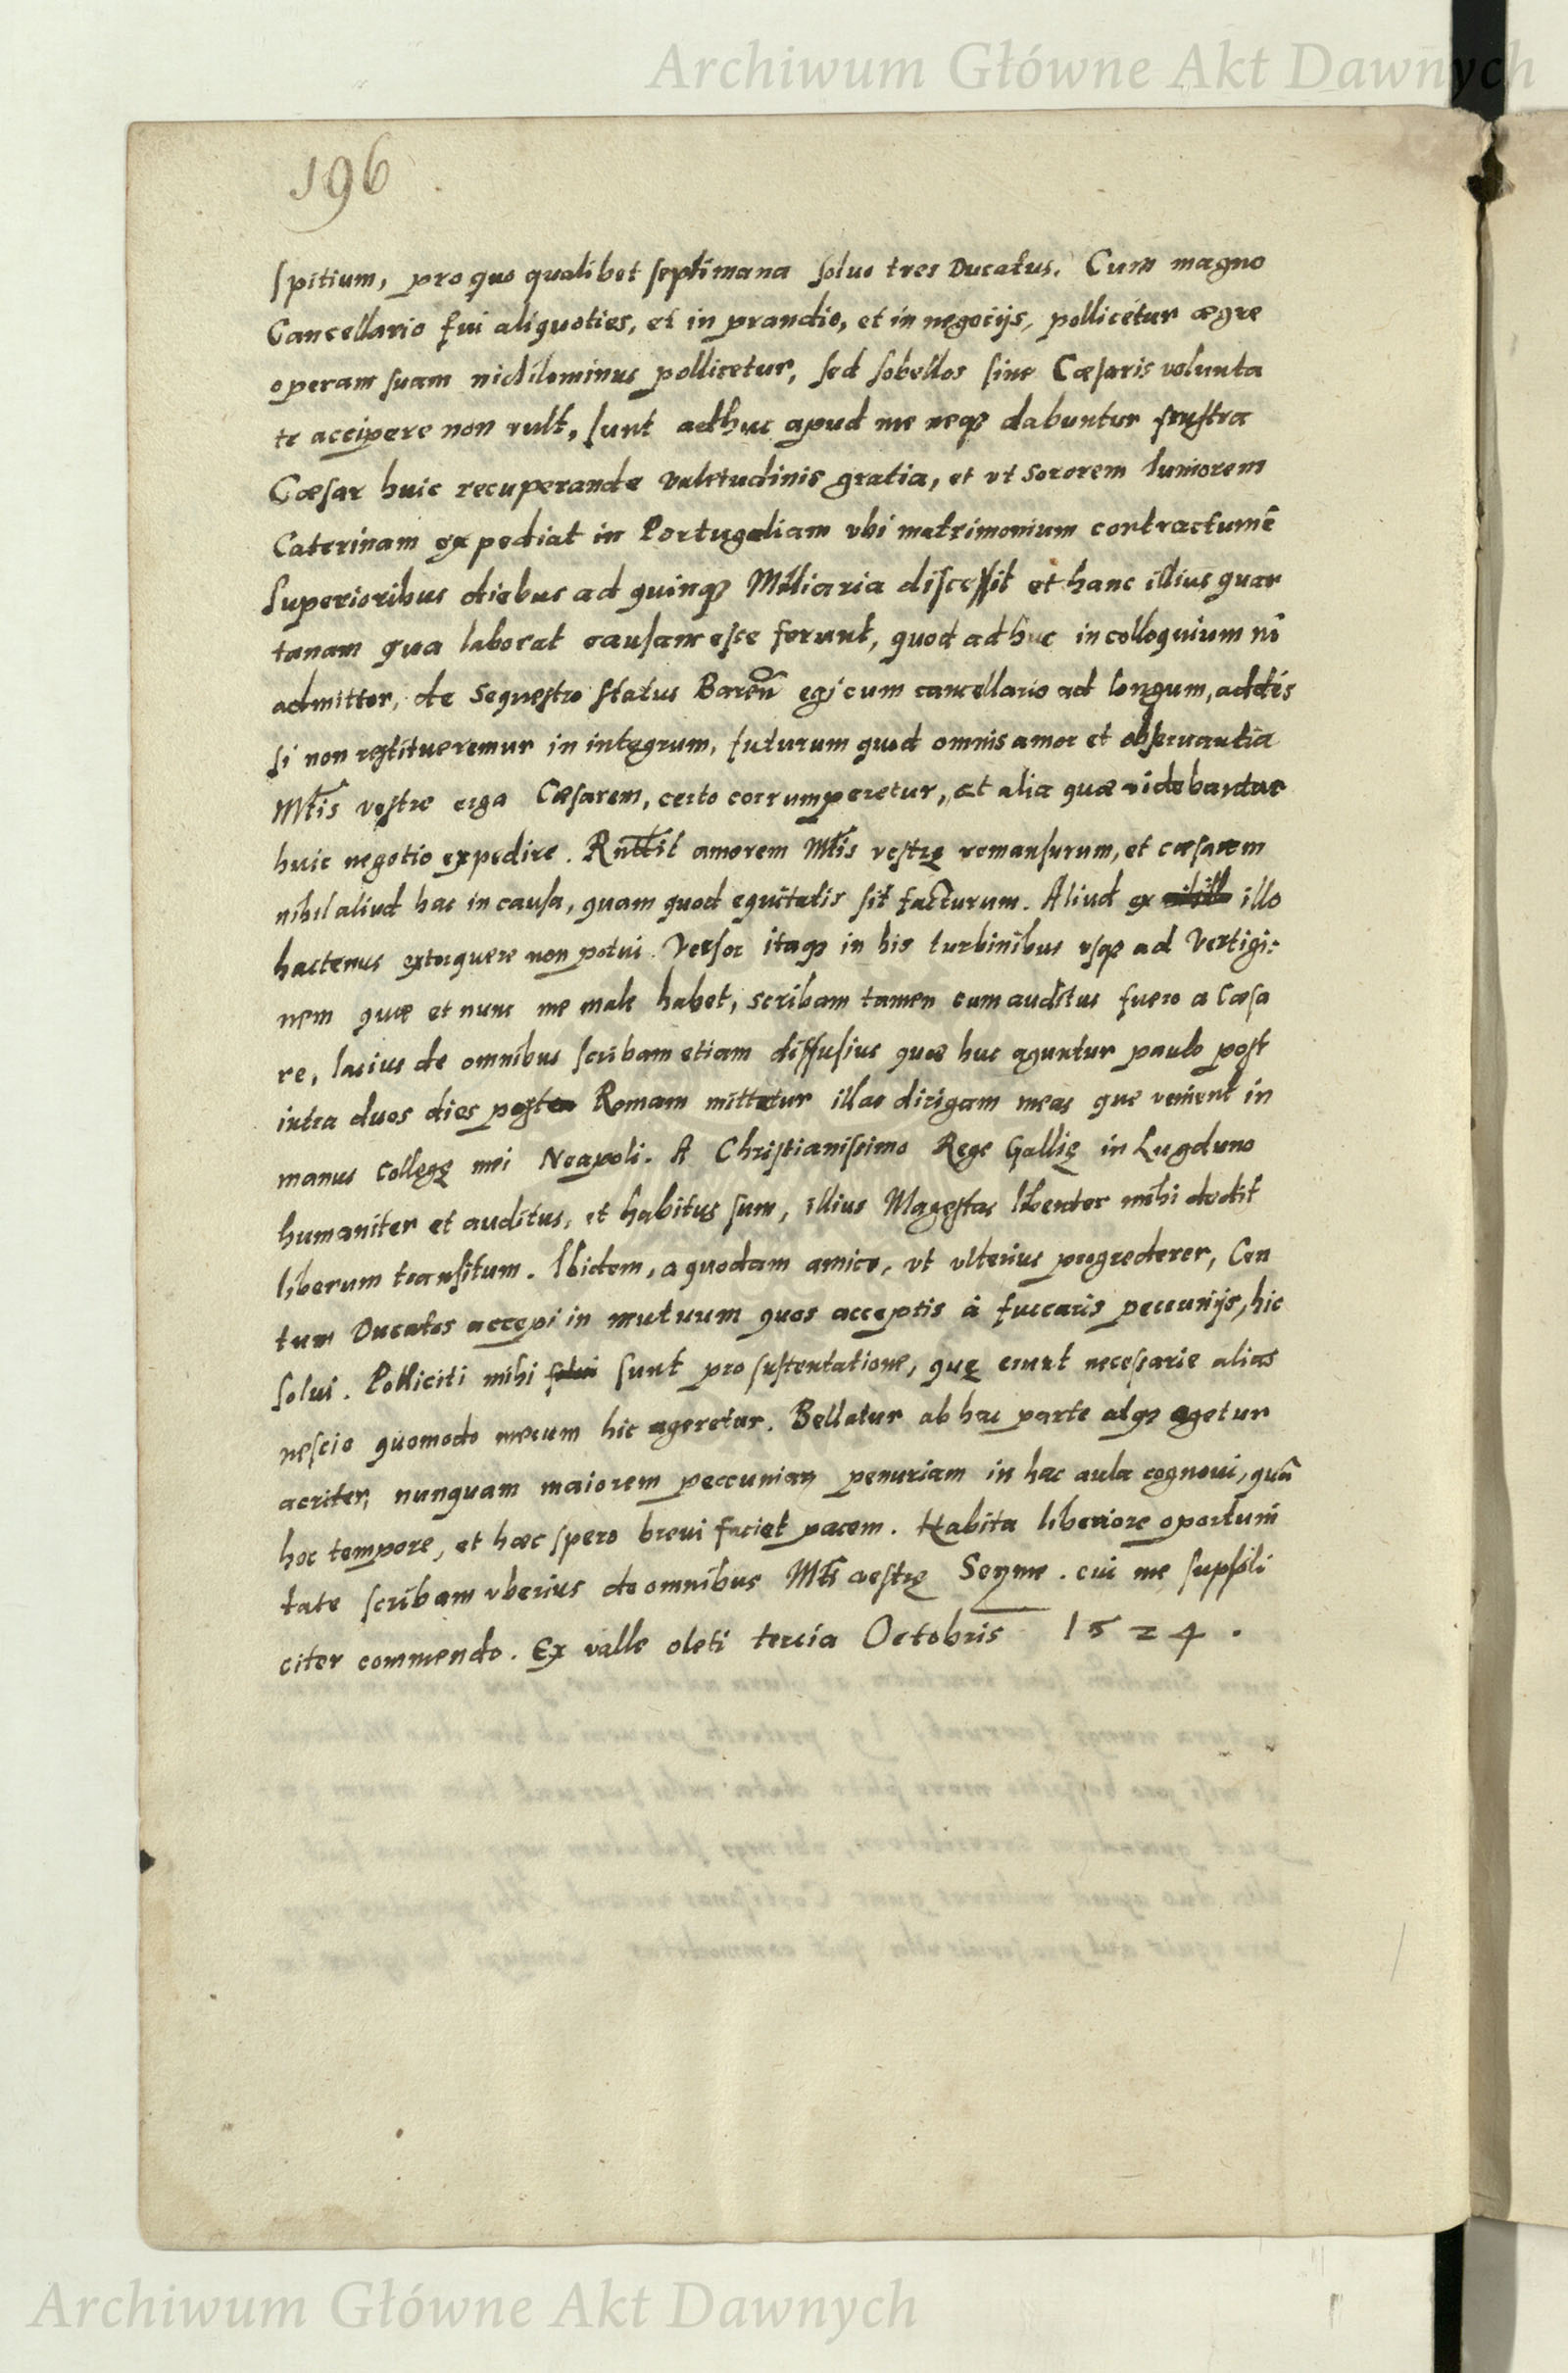 Archiwum Główne Akt Dawnych
196
spitium, pro quo qualibet septimana soluo tres Ducatus. Cum magno
Cancellario fui aliquoties, et in prandio, et in negocijs, pollicetur ægre
operam suam nichilominus pollicetur, sed sobellos sine Cæsaris volunta
te accipere non vult, sunt adhuc apud me neqꝫ dabuntur frustra
Cæsar huic recuperande valetudinis gratia, et vt sororem Iuniorem
Caterinam expediat in Portugaliam vbi matrimonium contractum ē
superioribus diebus ad quinqꝫ Milliaria discessit et hanc illius quar
tanam qua laborat causam esse ferunt, quod adhuc in colloquium nō
admittor, de sequestro status Bareñ egi cum cancellario ad longum, addēs
si non restitueremur in integrum, futurum quod omnis amor et obseruantia
Mtis vestre erga Cæsarem, certo corrumperetur, et alia quæ videbantur
huic negotio expedire. Rñdit amorem Mtis vestrę remansurum, et cæsarem
nihil aliud hac in causa, quam quod equitatis sit facturum. Aliud ex illo
hactenus extorquere non potui. Versor itaqꝫ in his turbinibus vsqꝫ ad Vertigi:
nem quæ et nunc me male habet, scribam tamen cum auditus fuero a Cæsa
re, lacius de omnibus scribam etiam diffusius quæ huc aguntur paulo post
intra duos dies posta Romam mittetur illac dirigam meas que venient in
manus collegę mei Neapoli. A Christianissimo Rege Gallię in Lugduno
humaniter et auditus, et habitus sum, illius Magestas libenter mihi dedit
liberum transitum. Ibidem, a quodam amico, vt vlterius progrederer, Cen
tum Ducatos accepi in mutuum quos acceptis à fuccaris peccunijs, hic
solui. Polliciti mihi sunt pro sustentatione, quę erunt necessarie alias
nescio quomodo mecum hic ageretur. Bellatur ab hac parte atqꝫ agetur
acriter, nunquam maiorem peccuniar penuriam in hac aula cognoui, quā
hoc tempore, et hæc spero breui faciet pacem. Habita liberiore oportuni
tate scribam vberius de omnibus Mti vestrę Serme. cui me suppli
citer commendo. Ex valle oleti tercia Octobris 1524.
Archiwum Główne Akt Dawnych